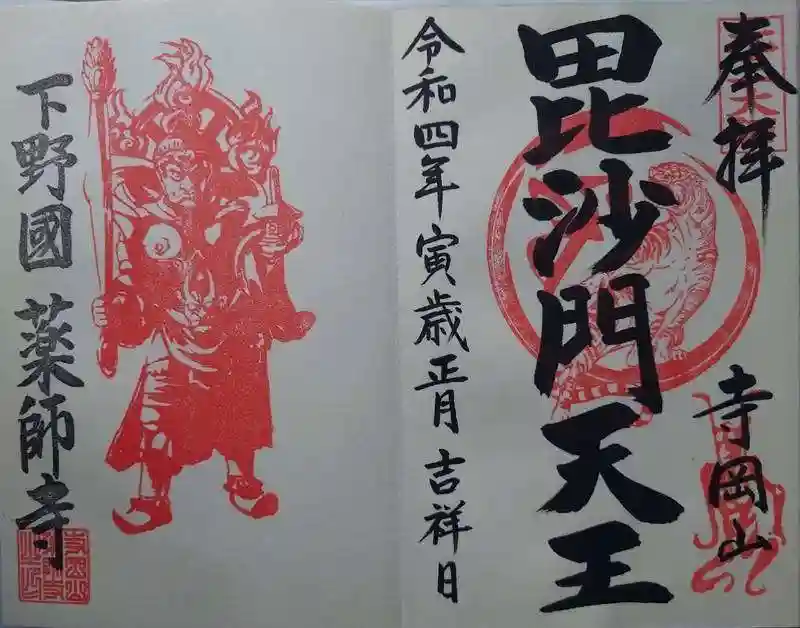 奉拝
寺岡山
毘沙門天王
令和四年寅歳正月吉祥日
下野國 薬師寺